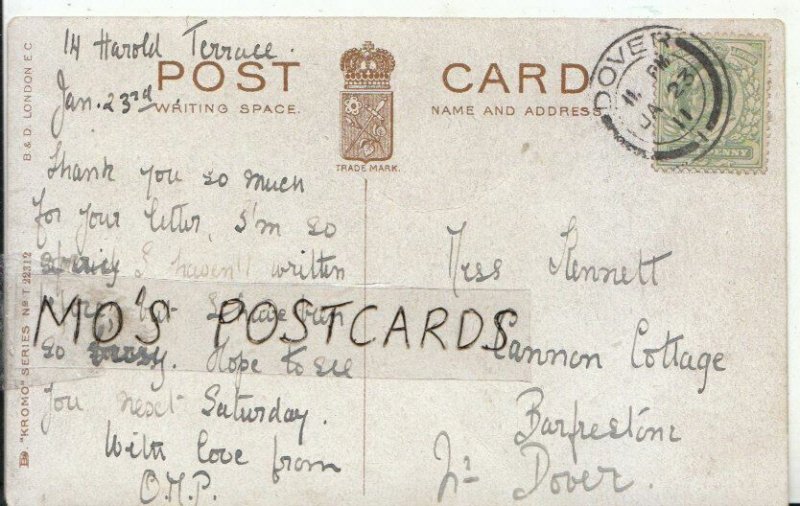 14 Harold Terrace.
Jan. 23rd
POST CARD
WRITING SPACE.
NAME AND ADDRESS
TRADE MARK.
B & D. LONDON E C
"KROMO" SERIES No T. 22312
DOVER
11 PM
JA 23
11
1
PENNY
Thank you so much
for your letter, I'm so
I haven't written
MO'S POSTCARDS
so busy. Hope to see
you next Saturday.
With love from
O.M.P.
Kennett
Cannon Cottage
Barfrestone
Nr Dover.